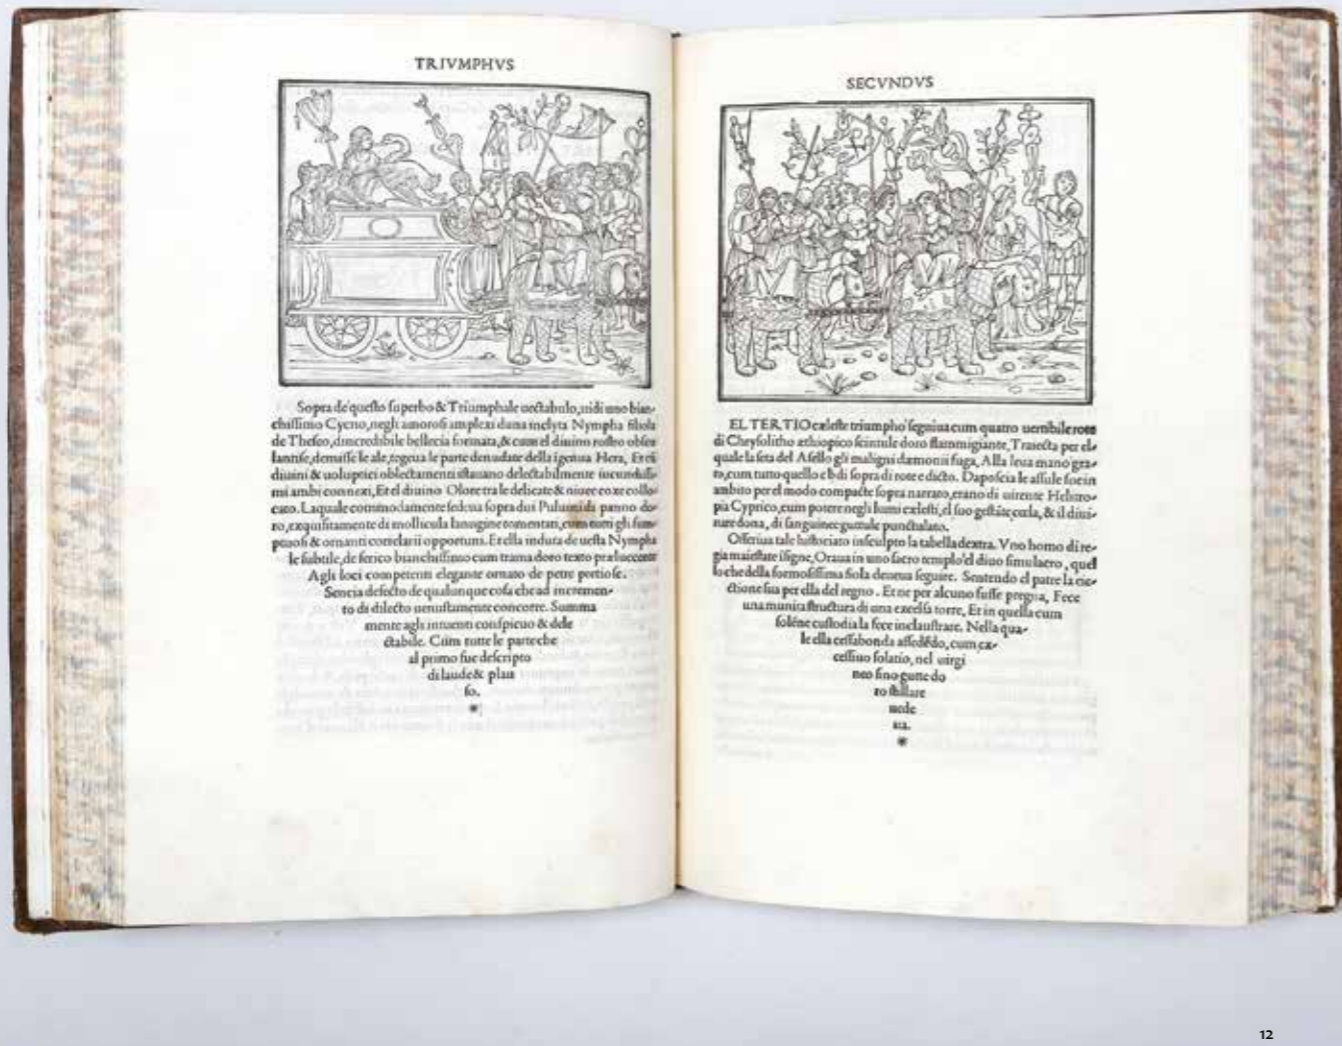 TRIVMPHVS
Sopra de questo superbo & Triumphale uectabulo, uidi uno bian-
chissimo Cycno, negli amorosi amplexi duna inclyta Nympha filiola
de Theseo, dincredibile bellecia formata, & cum el diuino rostro obscu
lantise, demisse le ale, tegeua le parte denudate della igenua Hera, Et cũ
diuini & uoluptici oblectamenti istauano delectabilmente iucundissi-
mi ambi connexi, Et el diuino Olore tra le delicate & niuee coxe collo-
cato. Laquale commodamente sedeua sopra dui Puluini di panno do-
ro, exquisitamente di mollicula lanugine tomentati, cum tutti gli sum-
ptuosi & ornanti correlarii opportuni. Et ella induta de uesta Nympha
le subtile, de serico bianchissimo cum trama doro texto præluccente
Agli loci competenti elegante ornato de petre pretiose.
Sencia defecto de qualunque cosa che ad incremen-
to di dilecto uenustamente concorre. Summa
mente agli intuenti conspicuo & dele
ctabile. Cum tutte le parte che
al primo fue descripto
di laude & plau
so.
*
SECVNDVS
EL TERTIO cæleste triumpho seguiua cum quatro uertibile rote
di Chrysolitho æthiopico scintule doro flammigiante, Traiecta per el-
quale la seta del Asello gli maligni dæmonii fuga, Alla leua mano gra-
to, cum tutto quello
ambito per el modo compacte sopra narrato, erano di uirente Helitro-
pia Cyprico, cum potere negli lumi cælesti, el suo gestãte cœla, & il diui-
nare dona, di sanguinee guttule punctulato.
Offeriua tale historiato insculpto la tabella dextra. Vno homo di re-
gia maiestate isigne, Oraua in uno sacro templo el diuo simulacro, quel
lo che della formosissima fiola deueua seguire. Sentendo el patre la eie-
ctione sua per ella del regno. Et ne per alcuno fusse pregna, Fece
una munita structura di una excelsa torre, Et in quella cum
solẽne custodia la fece inclaustrare. Nella qua-
le ella cessabonda assedẽdo, cum ex-
cessiuo solatio, nel uirgi
neo sino gutte do
ro stillare
uede
ua.
*
12